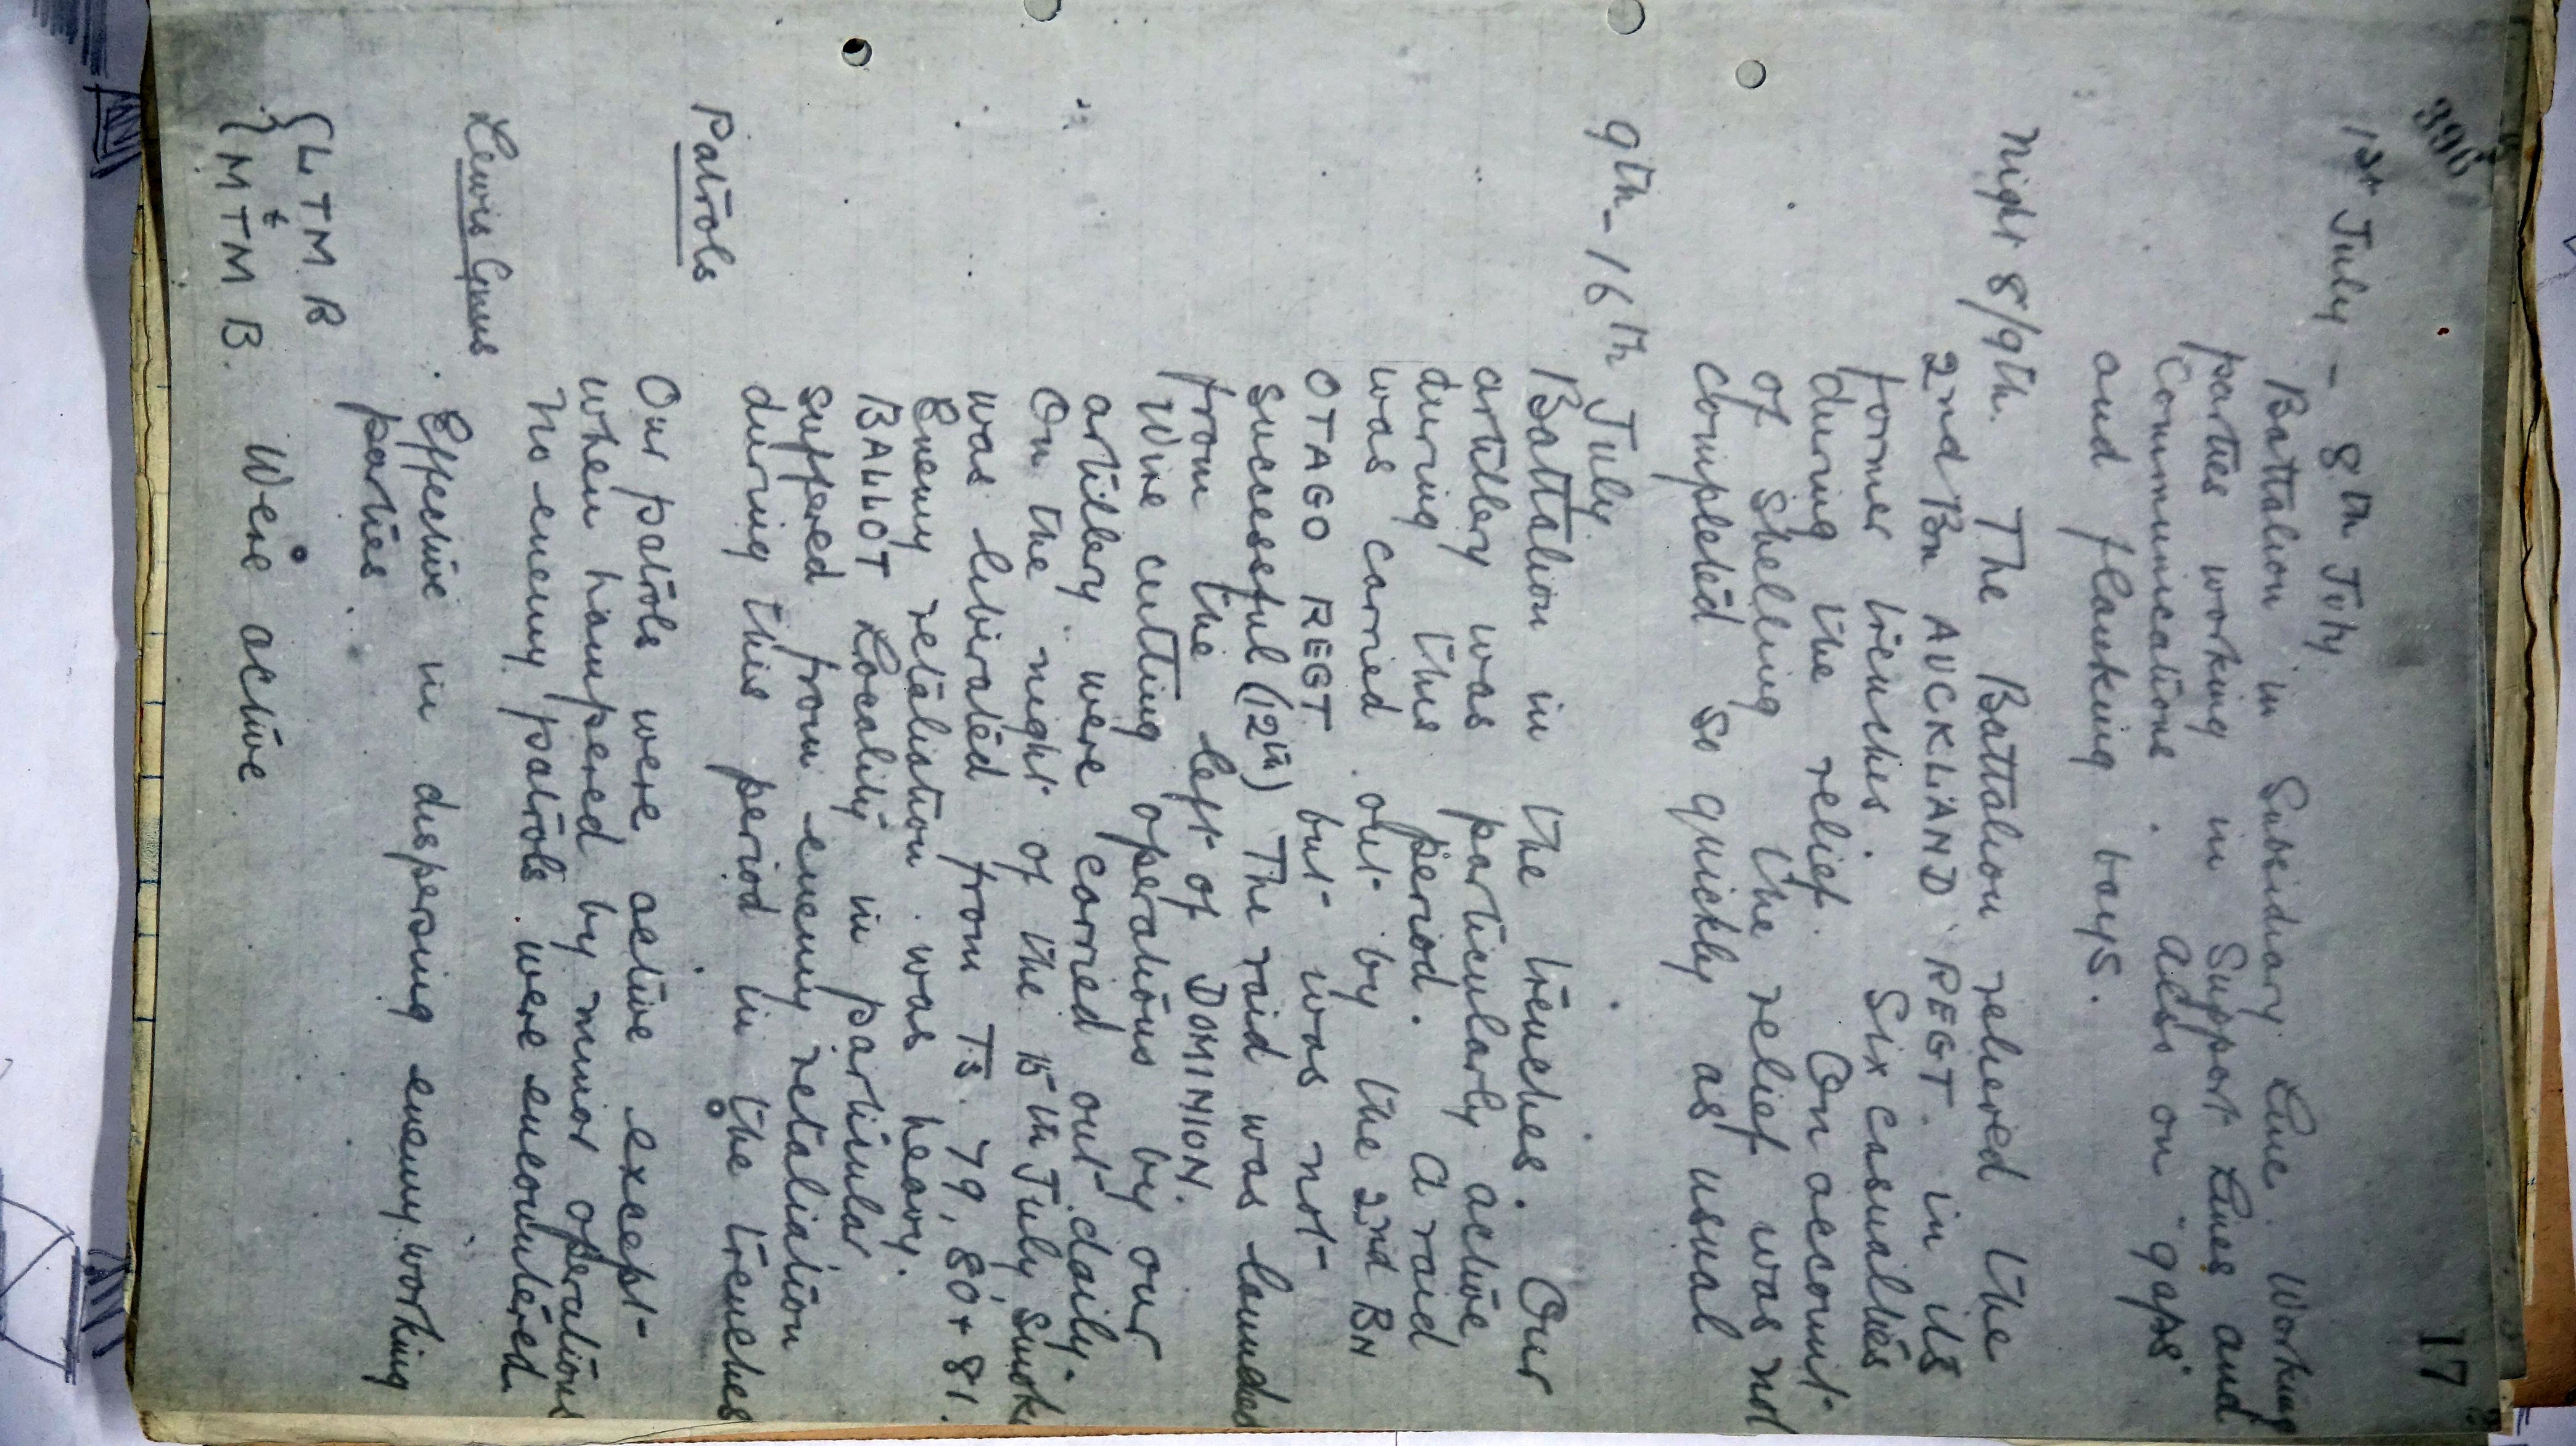 396
17
1st July - 8th July
Battalion in Subsidiary Line. Working
parties working in Support Lines and
Communications. Also on "gaps"
and flanking bays.
Night 8/9th. The Battalion relieved the
2nd Bn AUCKLAND REGT. in its
former trenches. Six casualties
during the relief. On account
of shelling the relief was not
completed so quickly as usual
9th - 16th July.
Battalion in the trenches. Our
artillery was particularly active
during this period. A raid
was carried out by the 2nd BN
OTAGO REGT but was not
successful (12th) The raid was launched
from the left of DOMINION.
Wire cutting operations by our
artillery were carried out daily.
On the night of the 15th July, Smoke
was liberated from TS. 79, 80 + 81.
Enemy retaliation was heavy.
BALLOT Locality in particular
suffered from enemy retaliation
during this period in the trenches
Patrols
Our patrols were active except
when hampered by minor operations
No enemy patrols were encountered.
Lewis Guns
Effective in dispersing enemy working
parties.
{ L T M B
&
{ M T M B. Were active